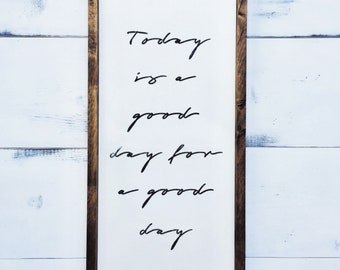 Today
is a
good
day for
a good
day